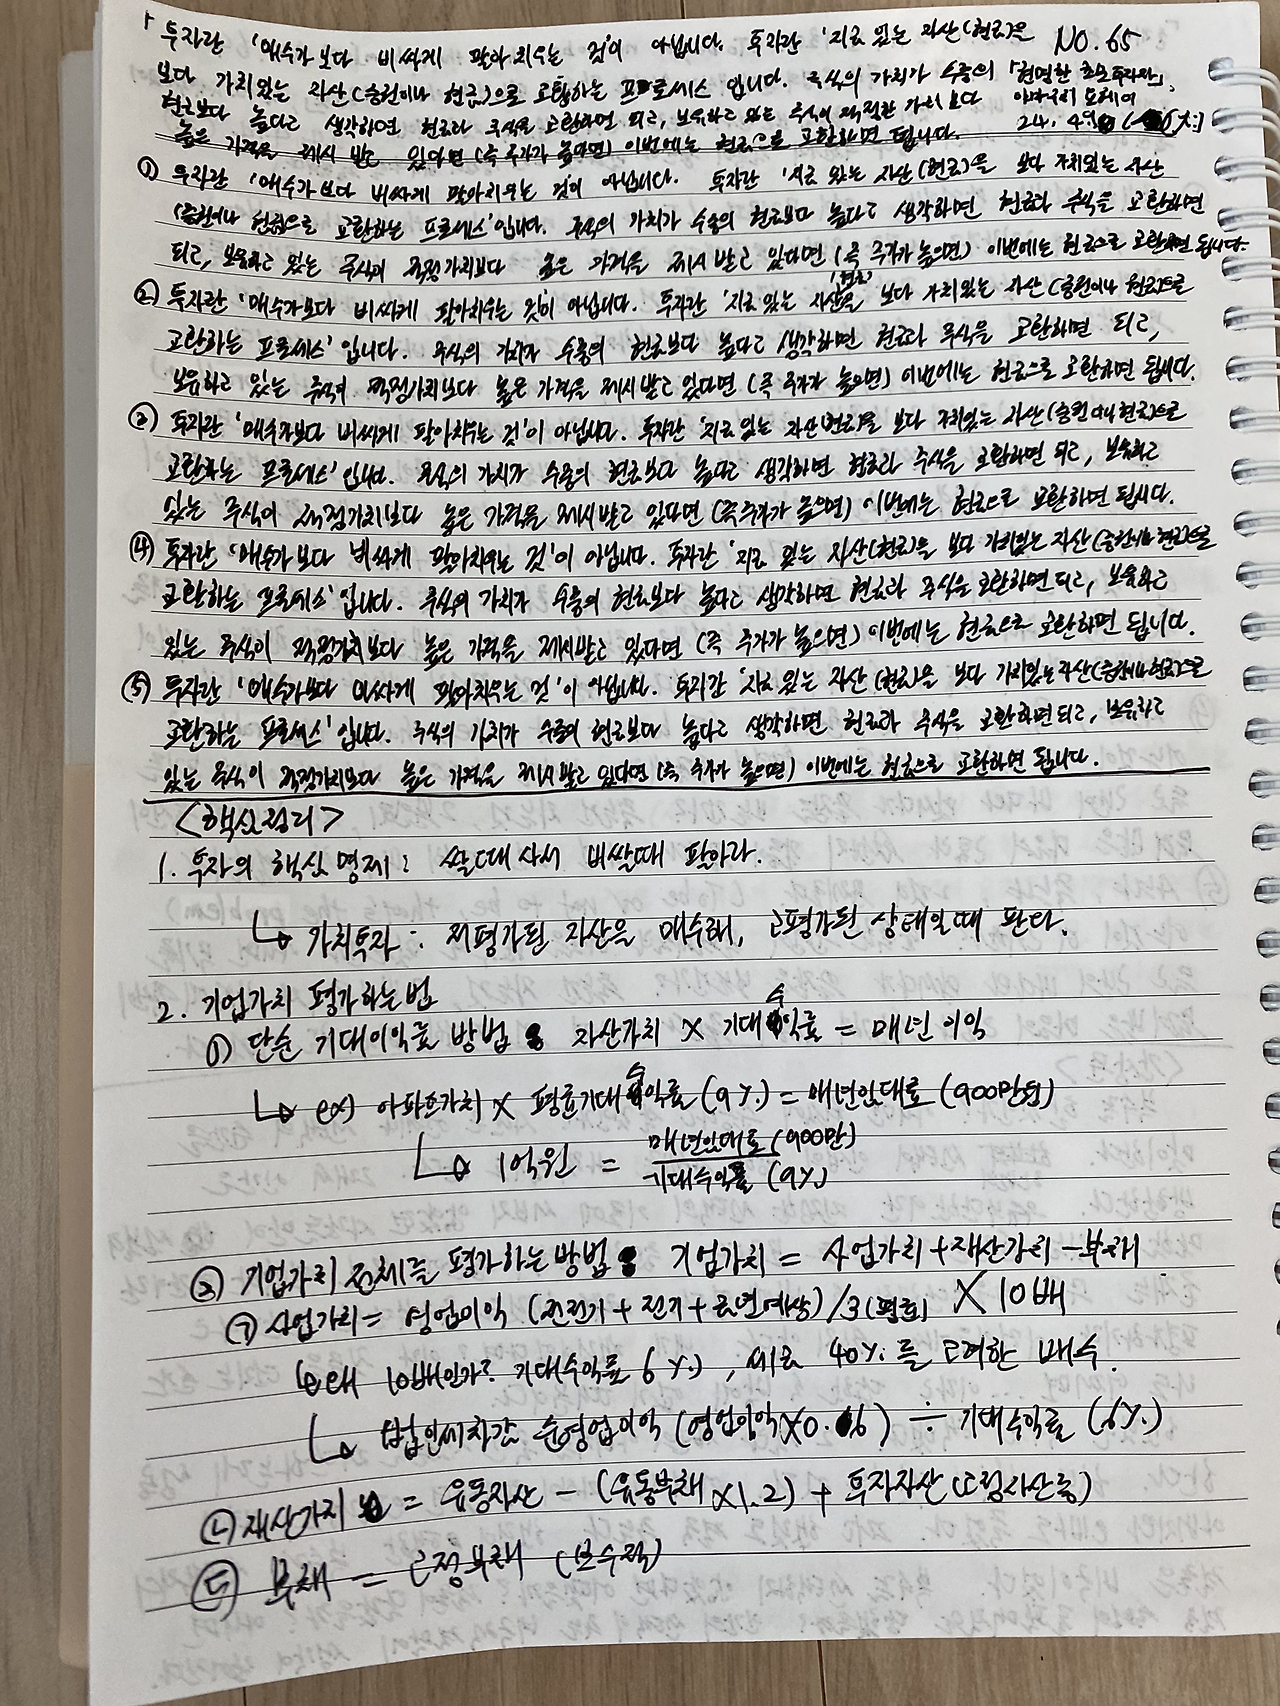 「투자란 '매수가보다 비싸게 팔아치우는 것'이 아닙니다. 투자란 '지금 있는 자산(현금)을 NO. 65
보다 가치있는 자산(증권이나 현금)으로 교환하는 프로세스 입니다. 주식의 가치가 수중의 「현명한 초보투자자」,
현금보다 높다고 생각하면 현금과 주식을 교환하면 되고, 보유하고 있는 주식이 적정한 가치보다 야마구치 요헤이
높은 가격을 제시 받고 있다면 (즉 주가가 높다면) 이번에는 현금으로 교환하면 됩니다. 24. 4.
① 투자란 '매수가보다 비싸게 팔아치우는 것이 아닙니다. 투자란 '지금 있는 자산(현금)을 보다 가치있는 자산
(증권이나 현금)으로 교환하는 프로세스'입니다. 주식의 가치가 수중의 현금보다 높다고 생각하면 현금과 주식을 교환하면
되고, 보유하고 있는 주식이 적정가치보다 높은 가격을 제시 받고 있다면 (즉 주가가 높으면) 이번에는 현금으로 교환하면 됩니다.
② 투자란 '매수가보다 비싸게 팔아치우는 것'이 아닙니다. 투자란 '지금 있는 자산(현금)을 보다 가치있는 자산(증권이나 현금)으로
교환하는 프로세스'입니다. 주식의 가치가 수중의 현금보다 높다고 생각하면 현금과 주식을 교환하면 되고,
보유하고 있는 주식이 적정가치보다 높은 가격을 제시받고 있다면 (즉 주가가 높으면) 이번에는 현금으로 교환하면 됩니다.
③ 투자란 '매수가보다 비싸게 팔아치우는 것'이 아닙니다. 투자란 '지금 있는 자산(현금)을 보다 가치있는 자산(증권이나 현금)으로
교환하는 프로세스'입니다. 주식의 가치가 수중의 현금보다 높다고 생각하면 현금과 주식을 교환하면 되고, 보유하고
있는 주식이 적정가치보다 높은 가격을 제시받고 있다면 (즉 주가가 높으면) 이번에는 현금으로 교환하면 됩니다.
④ 투자란 '매수가보다 비싸게 팔아치우는 것'이 아닙니다. 투자란 '지금 있는 자산(현금)을 보다 가치있는 자산(증권이나 현금)으로
교환하는 프로세스'입니다. 주식의 가치가 수중의 현금보다 높다고 생각하면 현금과 주식을 교환하면 되고, 보유하고
있는 주식이 적정가치보다 높은 가격을 제시받고 있다면 (즉 주가가 높으면) 이번에는 현금으로 교환하면 됩니다.
⑤ 투자란 '매수가보다 비싸게 팔아치우는 것'이 아닙니다. 투자란 '지금 있는 자산(현금)을 보다 가치있는 자산(증권이나 현금)으로
교환하는 프로세스'입니다. 주식의 가치가 수중의 현금보다 높다고 생각하면 현금과 주식을 교환하면 되고, 보유하고
있는 주식이 적정가치보다 높은 가격을 제시 받고 있다면 (즉 주가가 높으면) 이번에는 현금으로 교환하면 됩니다.
<핵심정리>
1. 투자의 핵심 명제: 쌀때 사서 비쌀때 팔아라.
↳ 가치투자: 저평가된 자산을 매수해, 고평가된 상태일때 판다.
2. 기업가치 평가하는법
① 단순 기대이익률 방법: 자산가치 × 기대수익률 = 매년 이익
↳ ex) 아파트가치 × 평균기대수익률(9%) = 매년임대료(900만원)
↳ 1억원 = 매년임대료(900만)
기대수익률 (9%)
② 기업가치 전체를 평가하는 방법: 기업가치 = 사업가치+재산가치-부채
㉠ 사업가치 = 영업이익 (전전기 + 전기 + 금년예상)/3(평균) × 10배
↳ 왜 10배인가? 기대수익률 6%, 세금 40%를 고려한 배수.
↳ 법인세차감 순영업이익 (영업이익×0.6) ÷ 기대수익률 (6%)
㉡ 재산가치 = 유동자산 - (유동부채×1.2) + 투자자산(고정자산중)
㉢ 부채 = 고정부채 (보수적)